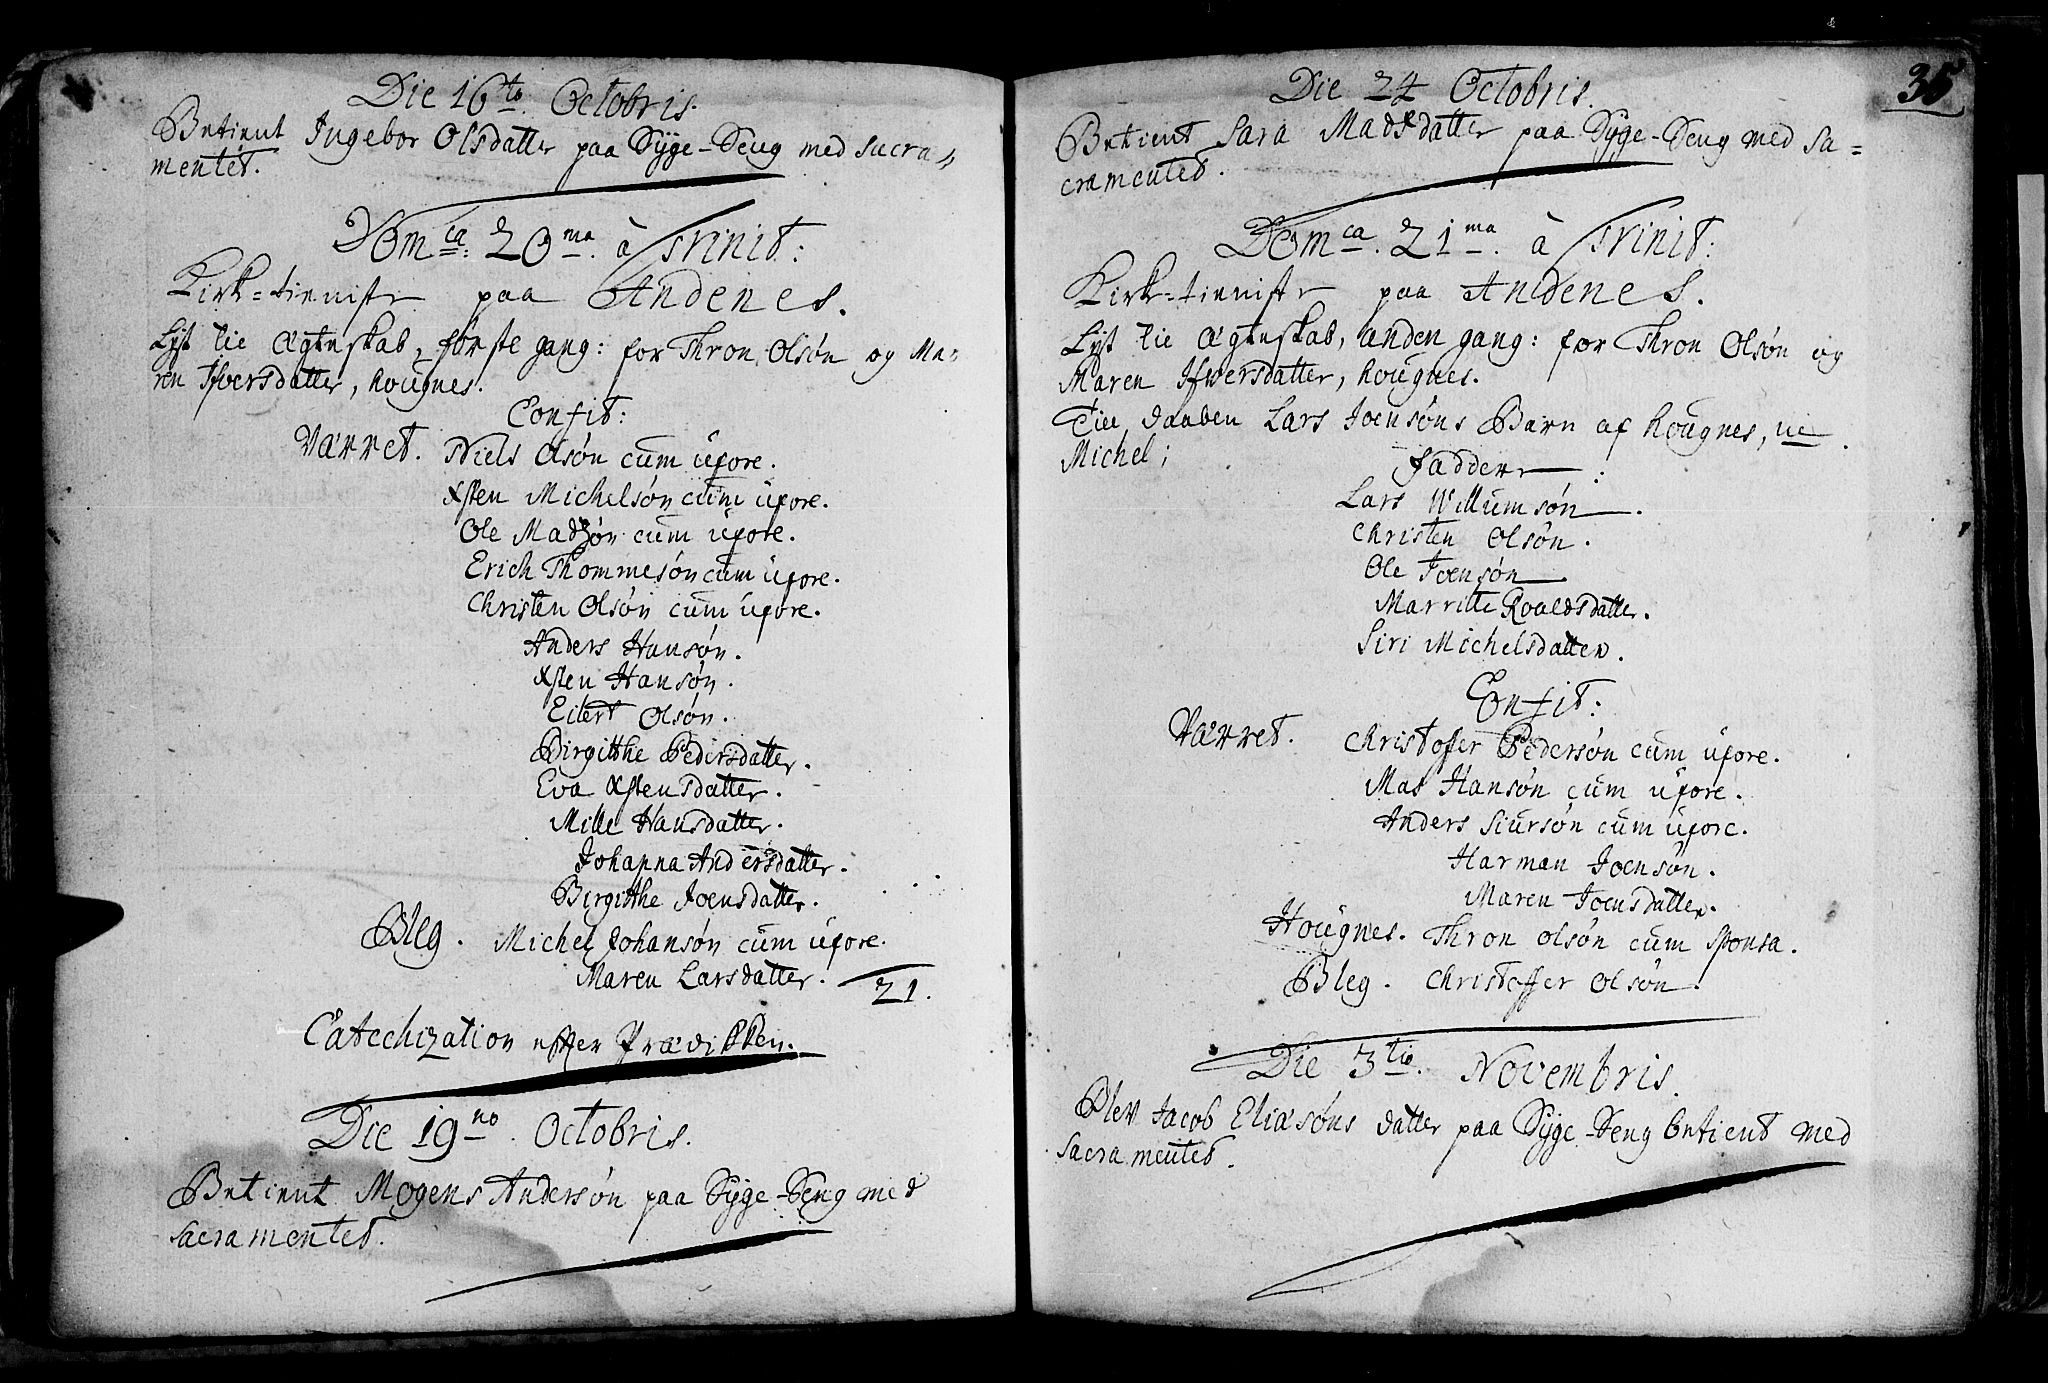 Die 16to Octobris.
Betient Ingebor Olsdatter paa Syge-Seng med Sacra=
mentet.
Domca: 20ma. à Trinit:
Kirk=tienniste paa Andenes.
Lyst til Ægteskab, første gang: for Thron Olsøn og Ma=
ren Ifversdatter, Hougnes.
Confit:
Værret. Niels Olsøn cum uxore.
Xsten Michelsøn cum uxore.
Ole Madsøn cum uxore.
Erich Thommesøn cum uxore.
Christen Olsøn cum uxore.
Anders Hansøn.
Xsten Hansøn.
Eilert Olsøn.
Birgitthe Pedersdatter.
Eva Xstensdatter.
Mille Hansdatter.
Johanna Andersdatter.
Birgitthe Joensdatter.
Bleg. Michel Johansøn cum uxore.
Maren Larsdatter. 21.
Catechization efter Prædikken.
Die 19no. Octobris.
Betient Mogens Andersøn paa Syge-Seng med
Sacramentet.
35
Die 24 Octobris.
Betient Sara Madsdatter paa Syge-Seng med Sa=
cramentet.
Domca. 21ma. à Trinit:
Kirk=tienniste paa Andenes.
Lyst til Ægteskab, anden gang: for Thron Olsøn og
Maren Ifversdatter, Hougnes.
Till Daaben Lars Joensøns Barn af Hougnes,
Michel;
Faddere:
Lars Willumsøn.
Christen Olsøn.
Ole Joensøn.
Marritte Roaldsdatter.
Siri Michelsdatter.
Confit:
Værret. Christoffer Pedersøn cum uxore.
Mas Hansøn cum uxore.
Anders Siursøn cum uxore.
Harman Joensøn.
Maren Joensdatter.
Hougnes. Thron Olsøn cum sponsa.
Bleg. Christoffer Olsøn.
Die 3tio. Novembris.
Blev Jacob Eliæsøns datter paa Syge-Seng betient med
Sacramentet.